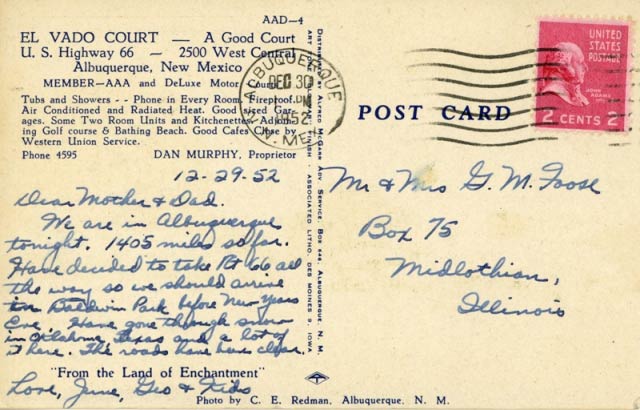 AAD—4
EL VADO COURT — A Good Court
U. S. Highway 66 — 2500 West Central
Albuquerque, New Mexico
MEMBER—AAA and DeLuxe Motor Courts
Tubs and Showers - - Phone in Every Room. Fireproof.
Air Conditioned and Radiated Heat. Good Sized Gar-
ages. Some Two Room Units and Kitchenettes. Adjoin-
ing Golf course & Bathing Beach. Good Cafes Close by
Western Union Service.
Phone 4595 DAN MURPHY, Proprietor
12-29-52
Dear Mother & Dad.
We are in Albuquerque
tonight. 1405 miles so far.
Have decided to take Rt 66 all
the way so we should arrive
in Baldwin Park before New Years
Eve. Have gone through snow
in Oklahoma, Texas and a lot of
it here. The roads have been clear.
"From the Land of Enchantment"
Love, June, Geo & Kids
Photo by C. E. Redman, Albuquerque, N. M.
Distributed by Alfred McGarr Adv. Service, Box 646, Albuquerque, N. M.
Finish - Associated Litho. Des Moines 9, Iowa
ALBUQUERQUE
DEC 30
PM
1952
N. MEX.
POST CARD
UNITED
STATES
POSTAGE
JOHN
ADAMS
2 CENTS 2
Mr & Mrs G. M. Foose
Box 75
Midlothian,
Illinois